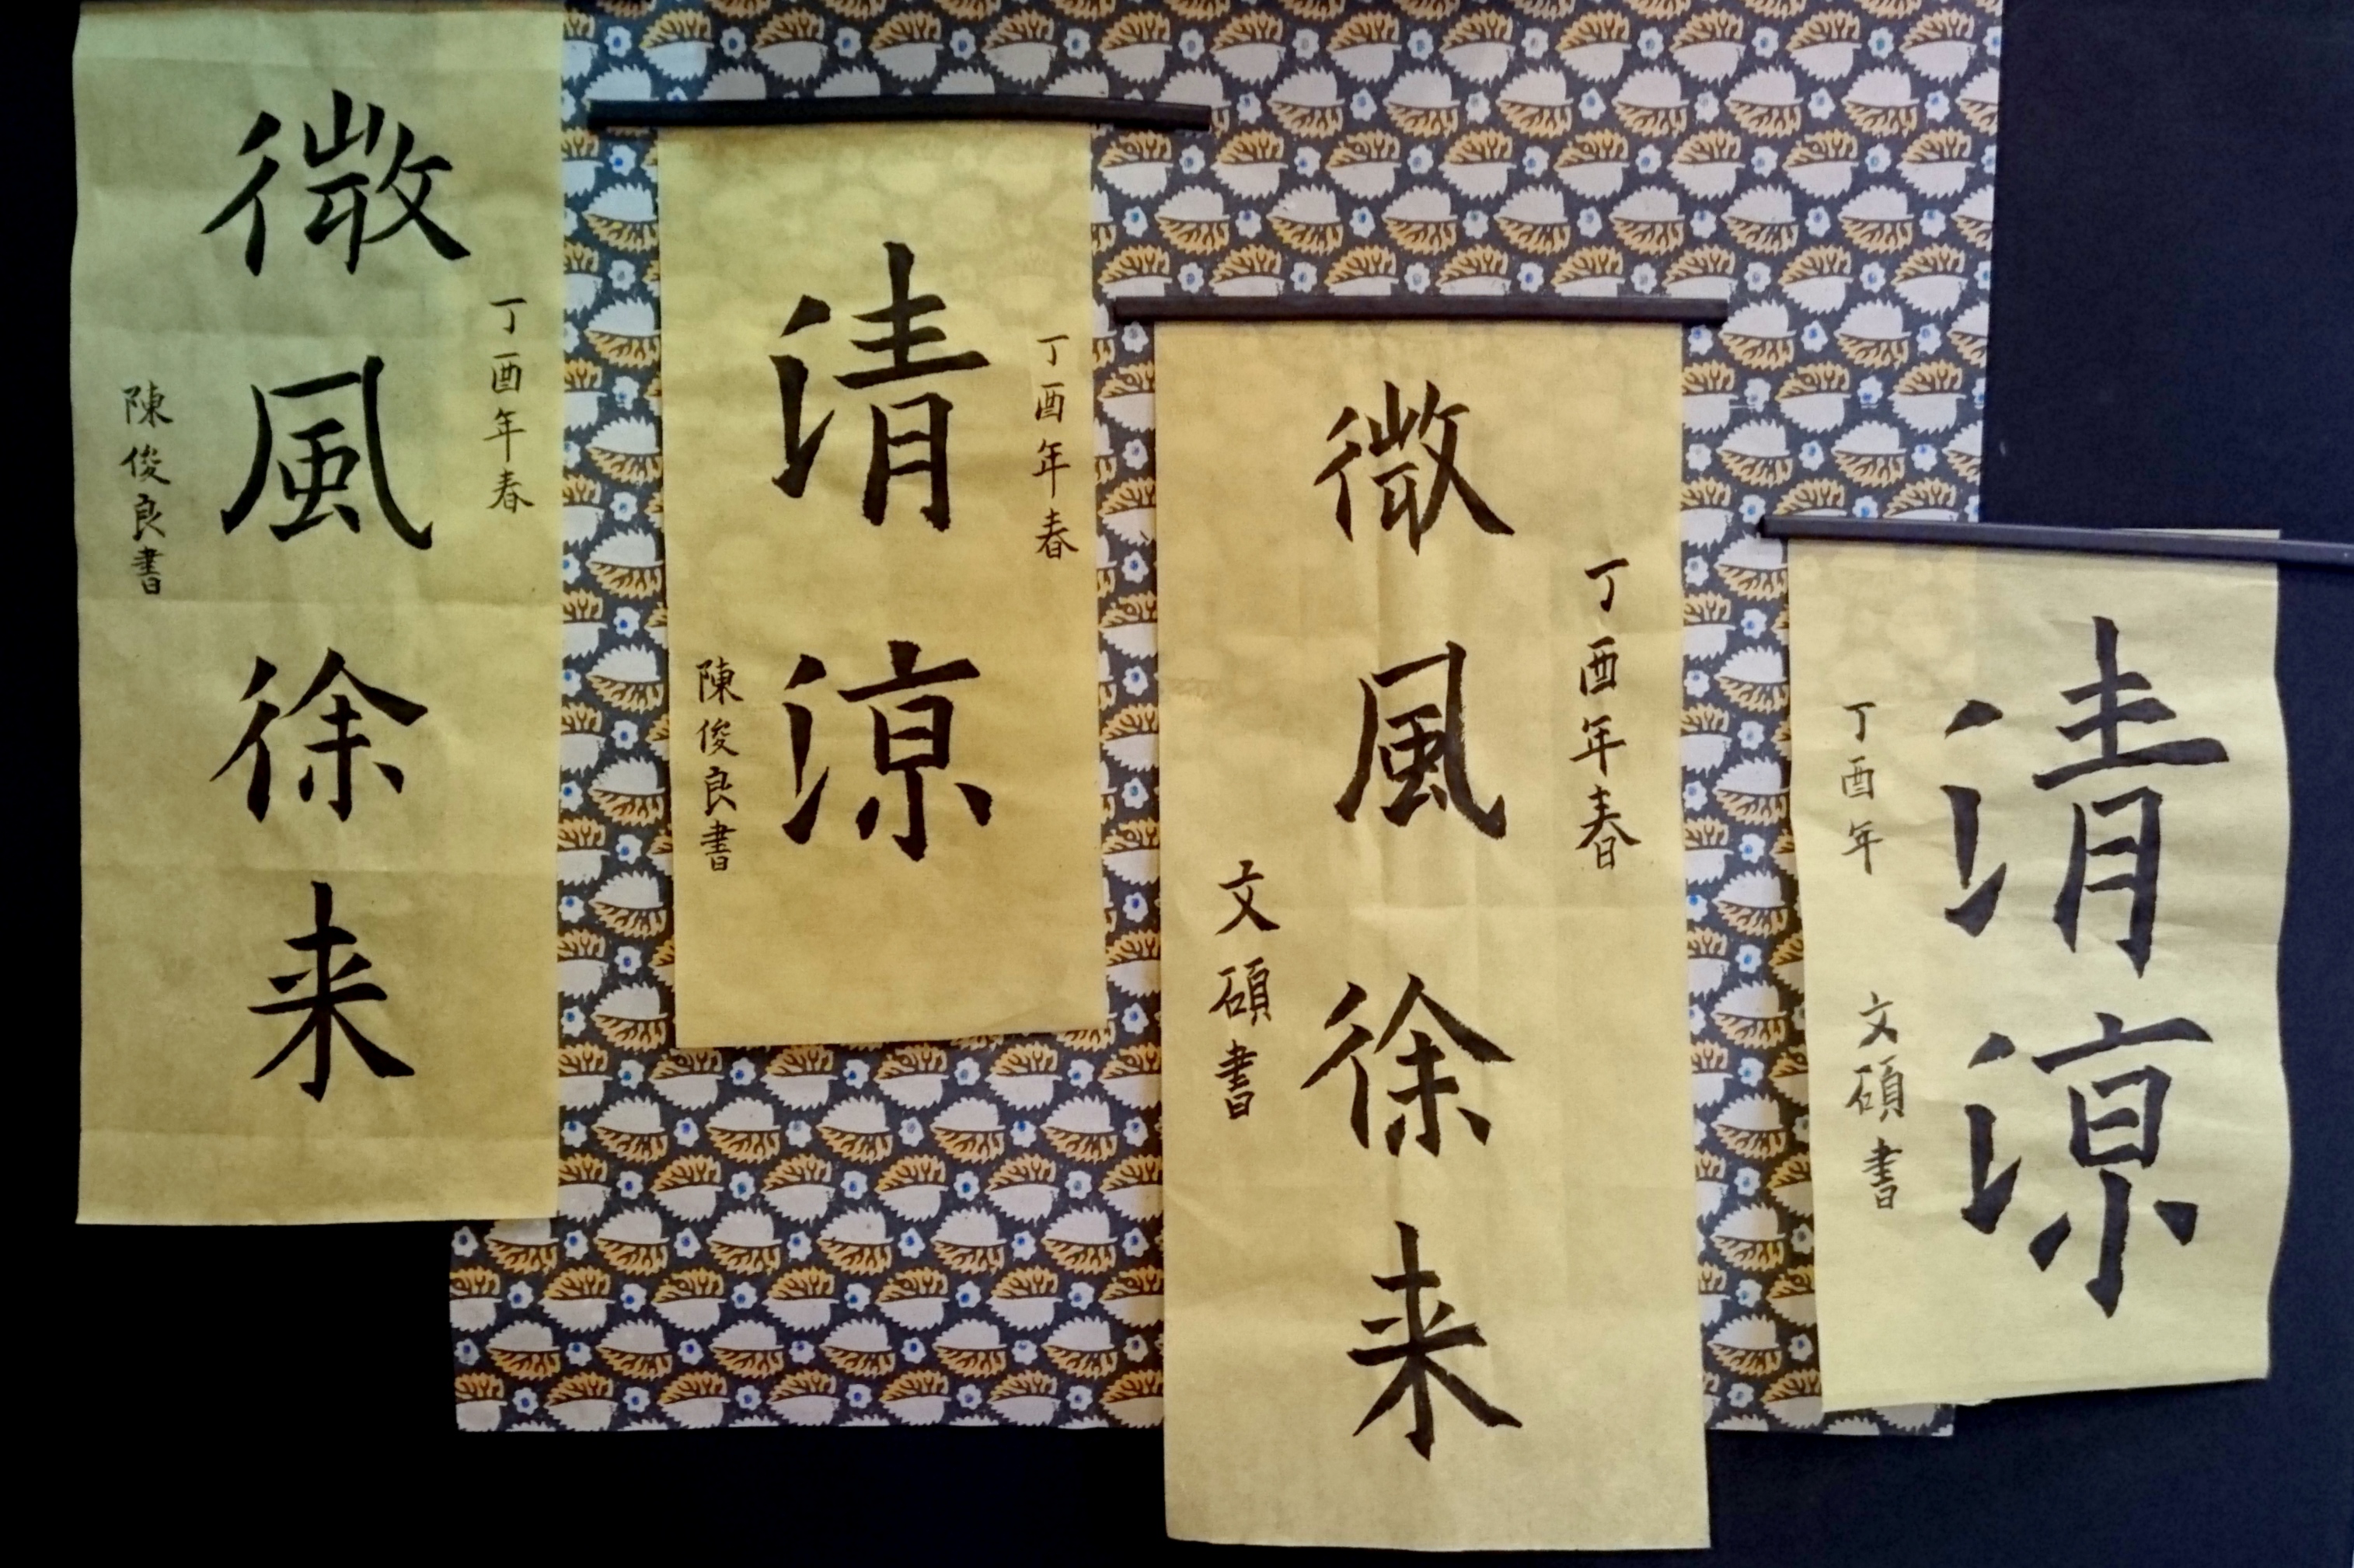 丁酉年春
微風徐来
陳俊良書
丁酉年春
清涼
陳俊良書
丁酉年春
微風徐来
文碩書
清涼
丁酉年
文碩書